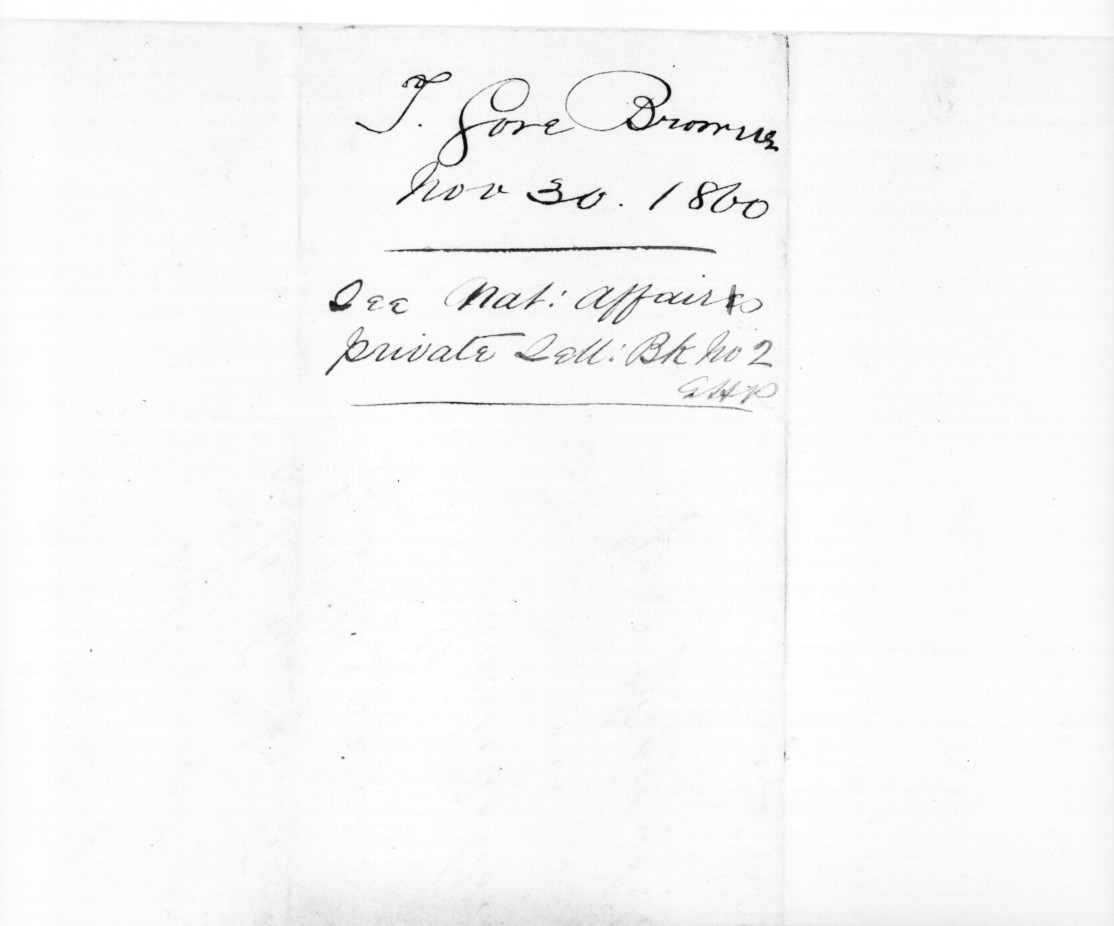 T. Gore Browne
Nov 30. 1860
See Nat: Affairs
private Lett: Bk No 2